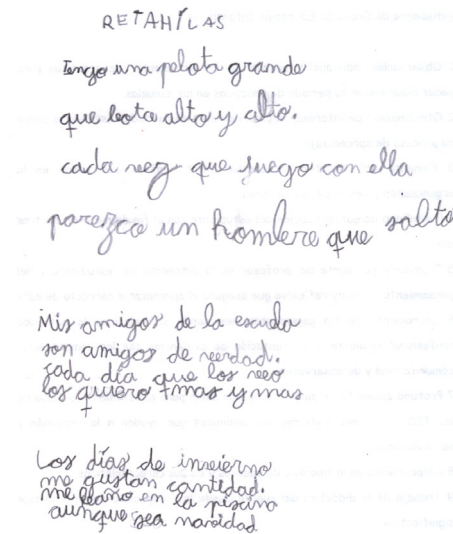 RETAHÍLAS
Tengo una pelota grande
que bota alto y alto.
cada vez que juego con ella
parezco un hombre que salta
Mis amigos de la escuela
son amigos de verdad.
cada día que los veo
los quiero mas y mas
Los días de invierno
me gustan cantidad.
me baño en la piscina
aunque sea navidad